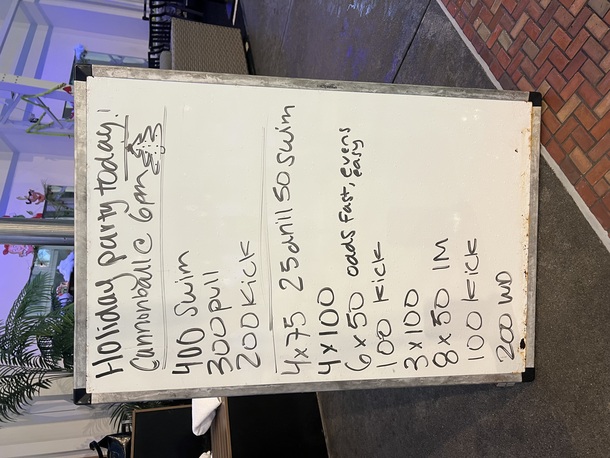 Holiday party today!
Cannonball @ 6pm
400 Swim
300 pull
200 Kick
4x75 25 drill 50 swim
4x100
6x50 odds fast, evens
easy
100 kick
3x100
8x50 IM
100 kick
200 WD